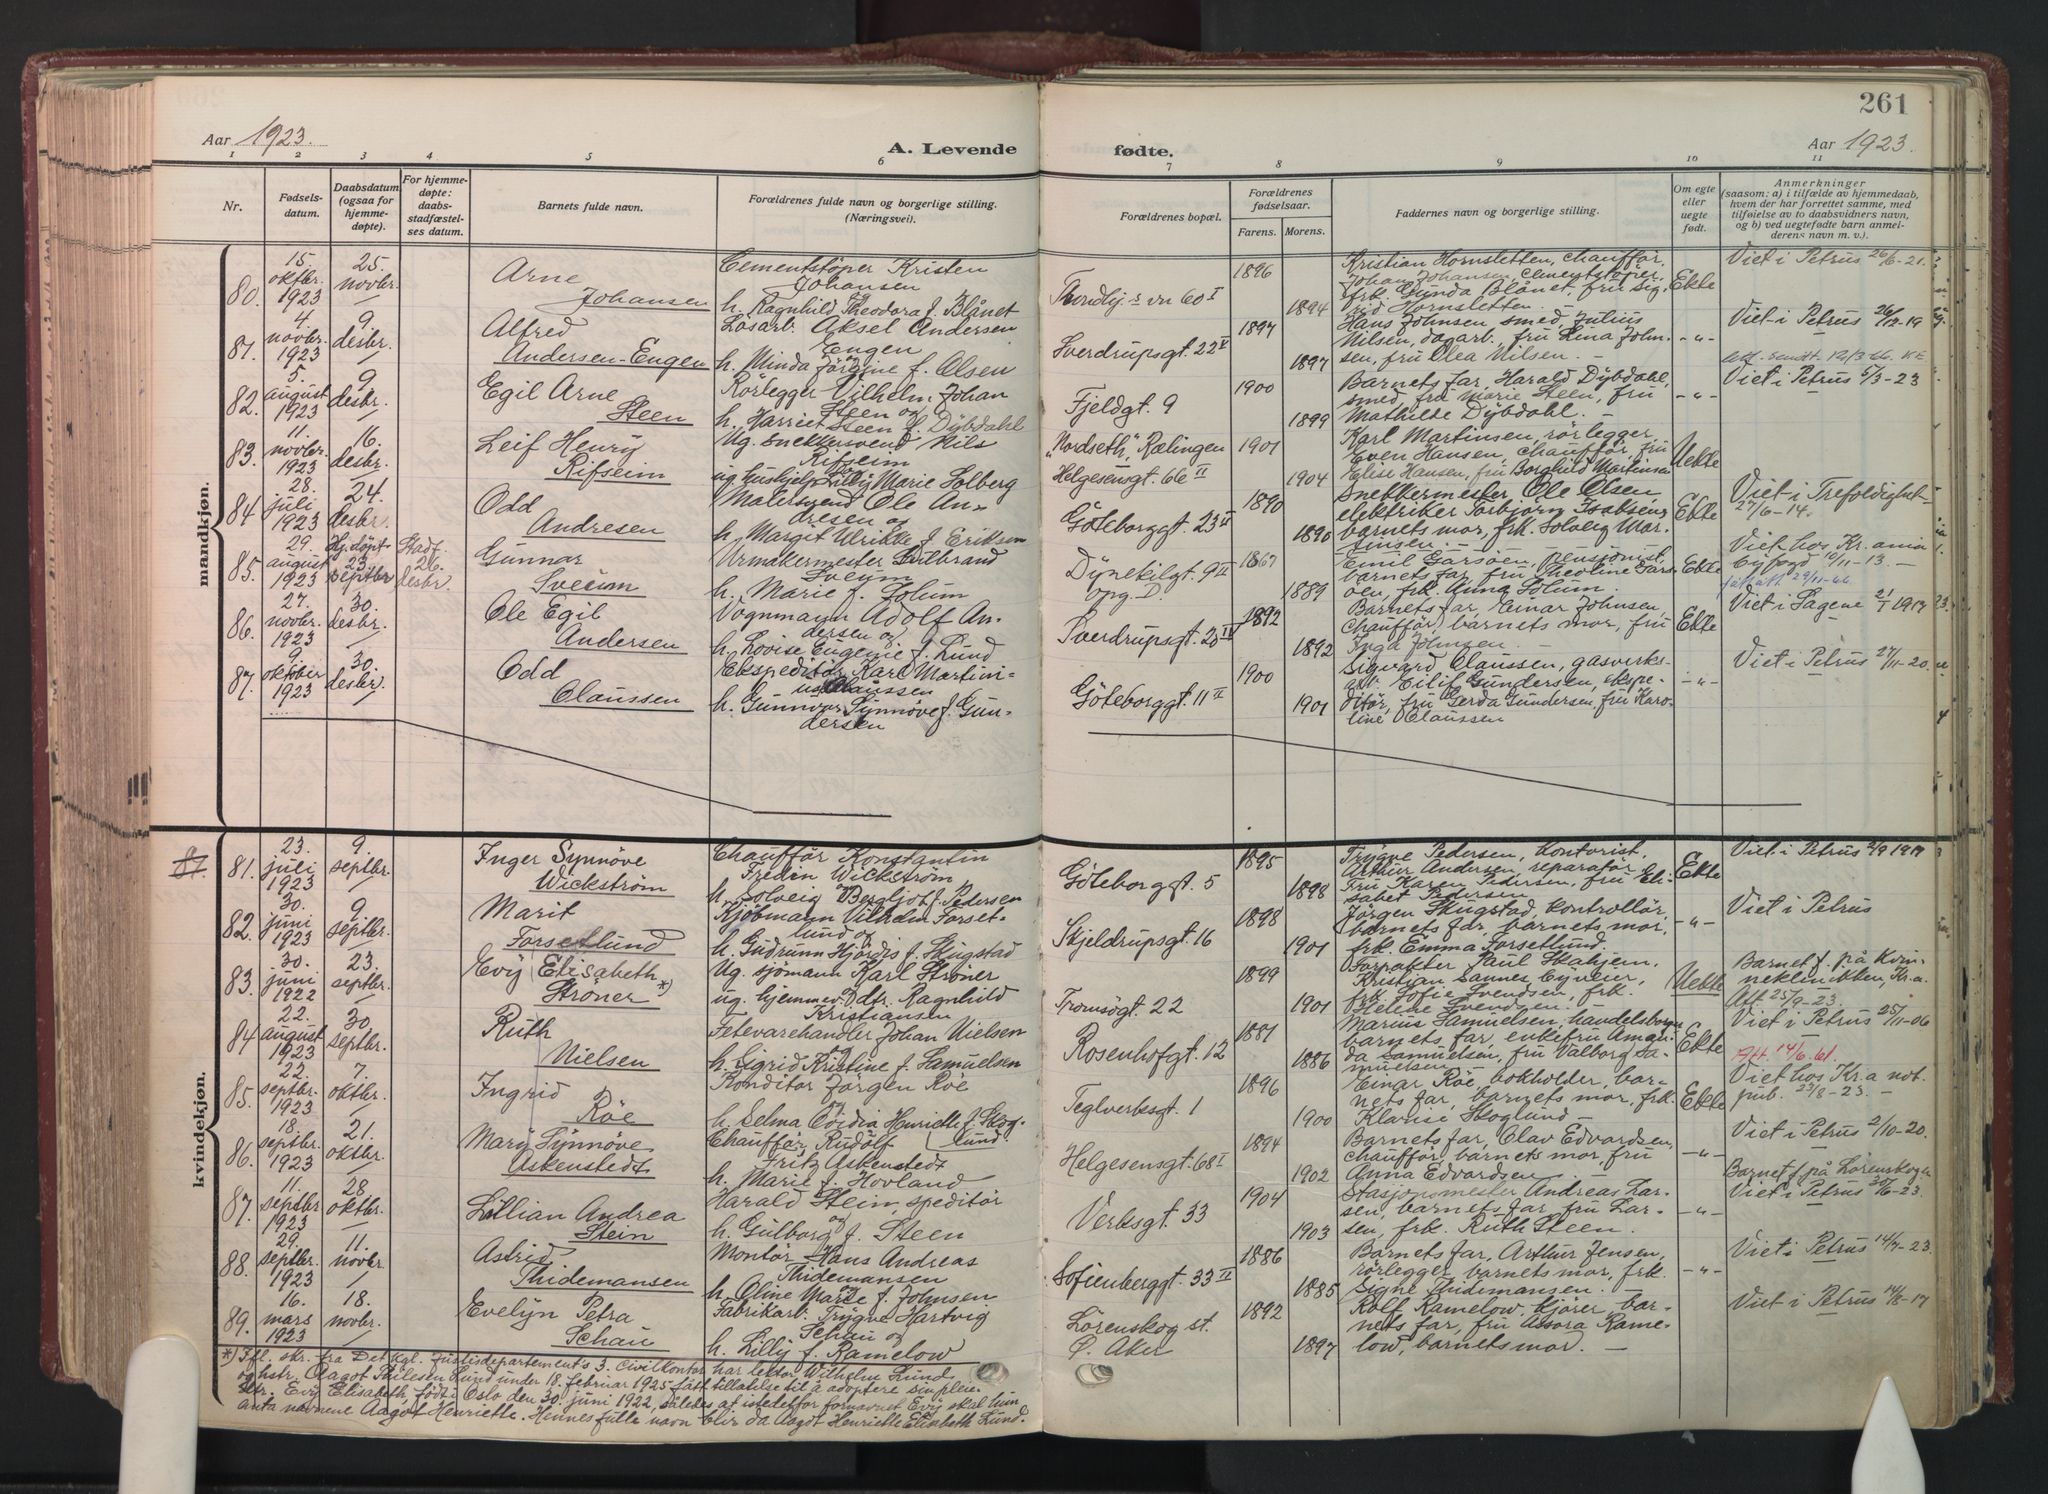 261
Aar 1923.
A. Levende fødte.
Aar 1923.
1 2 3 4 5 6 7 8 9 10 11
Nr.
Fødsels-
datum.
Daabsdatum
(ogsaa for
hjemme-
døpte).
For hjemme-
døpte:
daabs-
stadfæstel-
ses datum.
Barnets fulde navn.
Forældrenes fulde navn og borgerlige stilling.
(Næringsvei).
Forældrenes bopæl.
Forældrenes
fødselsaar.
Farens. Morens.
Faddernes navn og borgerlige stilling.
Om egte
eller
uegte
født.
Anmerkninger
(saasom: a) i tilfælde av hjemmedaab,
hvem der har forrettet samme, med
tilføielse av to daabsvidners navn,
og b) ved uegtefødte barn anmel-
derens navn m. v.).
mandkjøn.
80.
15.
oktbr.
1923
25.
novbr.
Arne
Johansen
Cementstöper Kristen
Johansen
h. Ragnhild Theodora f. Blånet
60 I
1896
1894
Kristian Hornsletten, chauffør,
Johan Johansen, cementstøper,
frk. Gunda Blånet, fru Sig-
rid Hornsletten. —
Ekte
Viet i Petrus 26/6-21.
81.
4.
novbr.
1923
9
desbr.
Alfred
Andersen-Engen
Løsarb. Aksel Andersen
Engen
h. Minda Jörgine f. Olsen
Sverdrupsgt. 22 II
1897
1897
Hans Johnsen, smed, Julius
Nilsen, dagarb., fru Lina John-
sen, fru Olea Nilsen. —
-„-
Viet i Petrus 26/12-19
82.
5.
august
1923
9
desbr.
Egil Arne
Steen
Rörlegger Vilhelm Johan
Steen og
h. Harriet Steen f. Dÿbdahl
Fjeldgt. 9
1900
1899
Barnets far, Harald Dÿbdahl,
smed, fru Marie Steen, fru
Mathilde Dÿbdahl. —
-„-
Viet i Petrus 5/3-23
83.
11.
novbr.
1923
16.
desbr.
Leif Henrÿ
Rifseim
Ug. snekkersvend Nils
Rifseim
ug. hushjelp Lilly Marie Solberg
"Nordseth", Rælingen
Helgesensgt. 66 II
1901
1904
Karl Martinsen, rørlegger,
Even Hansen, chauffør, fru
Elise Hansen, fru Borghild Martinsen
Uekte
84
28.
juli
1923
24.
desbr.
Odd
Andresen
Malersvend Ole An-
dresen og
h. Margit Ulrikke f. Eriksen
Göteborggt. 23 II
1890
1890
Snekkermester Ole Olsen,
elektriker Torbjörn Isaksen,
barnets mor, frk. Solveig Mar-
tinsen. —
Ekte
Viet i Trefoldighet
27/6-14.
85.
29.
august
1923
Hj.döpt
23
septbr
Stadf.
26.
desbr.
Gunnar
Sveum
Urmakermester Gulbrand
Sveum
h. Marie f. Solum
Dÿnekilgt. 9 II
opg. D
1867
1889
Emil Garsöen, pensionist,
barnets far, fru Theoline Gars-
öen, frk. Anna Solum.
Ekte
Viet hos Kr.ania
Byfogd 10/11-13. —
86.
27.
novbr.
1923
30.
desbr.
Ole Egil
Andersen
Vognmann Adolf An-
dersen og
h. Lovise Eugenie f. Lund
Sverdrupsgt. 20 IV
1892
1892
Barnets far, Einar Johnsen,
chauffør, barnets mor, fru
Inga Johnsen. —
Ekte
Viet i Sagene 21/1 1917
87.
9.
oktober
1923
30.
desbr.
Odd
Claussen
Ekspeditör Karl Martini-
us Claussen
h. Gunnvor Sÿnnöve f. Gun-
dersen
Göteborggt. 11 II
1900
1901
Sigvard Claussen, gasverks-
arb. Eilif Gundersen, ekspe-
ditör, fru Gerda Gundersen, fru Karo-
line Claussen
-„-
Viet i Petrus 27/11-20.
kvindekjøn.
81.
23.
juli
1923
9.
septbr.
Inger Synnöve
Wickström
Chauffør Konstantin
Fredin Wickström
h. Solveig Bergljot f. Pedersen
Göteborggt. 5
1895
1898
Trygve Pedersen, kontorist,
Arthur Andersen, reparatør,
Fru Karen Pedersen, fru Eli-
sabet Pedersen
Ekte
Viet i Petrus 2/9 1917
82.
30.
juni
1923
9
septbr.
Marit
Forsetlund
Kjöbmann Vilhelm Forset-
lund og
h. Gudrunn Hjördis f. Skugstad
Skjeldrupsgt. 16
1898
1901
Jörgen Skugstad, kontrollör,
barnets far, barnets mor,
frk. Emma Forsetlund.
-„-
Viet i Petrus
83.
30.
juni
1922
23.
septbr.
Evÿ Elisabeth *)
Ströner
Ug. sjömann Karl Ströner
ug. hjemmev. dtr. Ragnhild
Kristiansen
Tromsögt. 22
1899
1901
Forpakter Paul Skahjem,
Kristian Sannes
frk. Sofie Svendsen, frk.
Helene Svendsen.
Uekte
Barnet f. på Kvin-
neklinikken, Kr.a.
Att. 25/9-23.
84
22.
august
1923
30
septbr.
Ruth
Nielsen
Fetevarehandler Johan Nielsen
og
h. Sigrid Kristine f. Samuelsen
Rosenhofgt. 12
1881
1886
Marius Samuelsen, handelsborger,
barnets far, enkefru Aman-
da Samuelsen, fru Valborg Sa-
muelsen. —
Ekte
Viet i Petrus 25/11-06
Att. 14/6.61.
85.
22.
septbr.
1923
7.
oktbr.
Ingrid
Röe
Konditor Jörgen Röe
og
h. Selma Ovidia Henriette f. Skog-
lund.
Teglverksgt. 1
1896
1900
Einar Röe, bokholder, bar-
nets far, barnets mor, frk.
Klarise Skoglund —
Ekte
Viet hos Kr.a not.
pub. 23/8-23. —
86.
18.
septbr.
1923
21.
oktbr.
Marÿ Sÿnnöve
Askenstedt
Chauffør Rudolf
Fritz Askenstedt
h. Marie f. Hovland
Helgesensgt. 68 I
1894
1902
Barnets far, Olav Edvardsen,
chauffør, barnets mor, fru
Anna Edvardsen
-„-
Viet i Petrus 2/10-20.
87.
11.
septbr
1923
28
oktbr.
Lillian Andrea
Stein
Harald Stein, speditör
og
h. Gulborg f. Steen
Verksgt. 33
1904
1903
Stasjonsmester Andreas Lar-
sen, barnets far, fru Lar-
sen, frk. Ruth Steen.
-„-
Barnet f. på Lörenskogen
Viet i Petrus 30/6-23.
88.
29.
septbr.
1923
11.
novbr
Astrid
Thidemansen
Montör Hans Andreas
Thidemansen
h. Oline Marie f. Johnsen
Sofienberggt. 33 II
1886
1885
Barnets far, Arthur Jensen,
rörlegger, barnets mor, frk.
Signe Thidemansen. —
-„-
Viet i Petrus 14/7-23.
89.
16.
mars
1923
18.
novbr.
Evelÿn Petra
Schau
Fabrikarb. Trÿgve Hartvig
Schau og
h. Lilly f. Ramelow
Lörenskog st.
Ø. Aker
1892
1897
Rolf Ramelow, kjörer, bar-
nets far, fru Assora Rame-
low, barnets mor. —
Viet i Petrus 14/8-17
*) Ifl. skr. fra Det kgl. Justisdepartement's 3. civilkontor har lektor Wilhelm Lund
og hstr. Aagot Lund under 18. februar 1925 fått tillatelse til å adoptere sin pleie-
dtr. Evÿ Elisabeth, født i Oslo den 30. juni 1922, således at istedetfor fornavnet Evÿ skal hun
anta navnene Aagot Henriette. Hennes fulle navn blir da Aagot Henriette Elisabeth Lund.